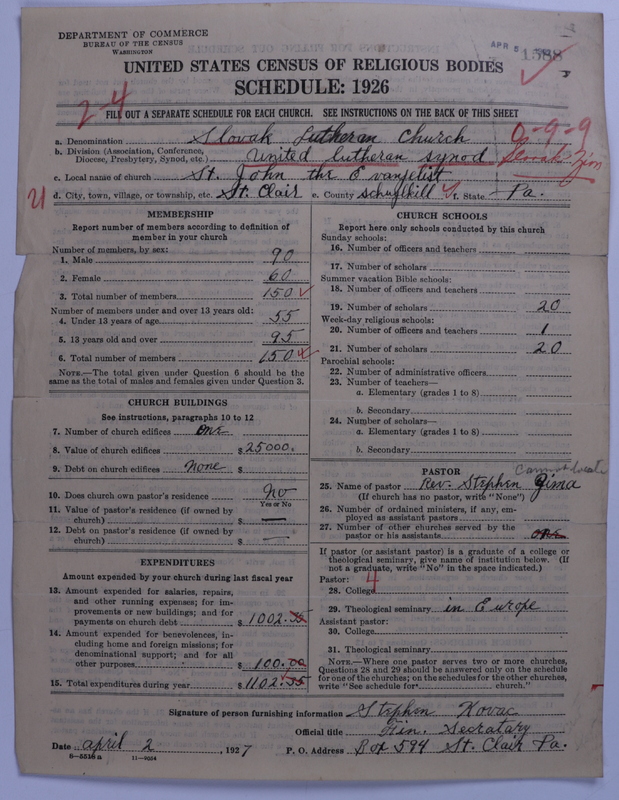 DEPARTMENT OF COMMERCE
BUREAU OF THE CENSUS
WASHINGTON
APR 5
1588
UNITED STATES CENSUS OF RELIGIOUS BODIES
SCHEDULE: 1926
2-4
FILL OUT A SEPARATE SCHEDULE FOR EACH CHURCH. SEE INSTRUCTIONS ON THE BACK OF THIS SHEET
a. Denomination Slovak Lutheran Church
0-9-9
b. Division (Association, Conference, Diocese, Presbytery, Synod, etc.) United lutheran synod
Slovak Zion
c. Local name of church St. John the Evangelist
d. City, town, village, or township, etc. St. Clair e. County schuylkill f. State Pa.
MEMBERSHIP
Report number of members according to definition of
member in your church
Number of members, by sex:
1. Male 90
2. Female 60
3. Total number of members 150
Number of members under and over 13 years old:
4. Under 13 years of age 55
5. 13 years old and over 95
6. Total number of members 150
NOTE.—The total given under Question 6 should be the
same as the total of males and females given under Question 3.
CHURCH BUILDINGS
See instructions, paragraphs 10 to 12
7. Number of church edifices one
8. Value of church edifices $ 25000.
9. Debt on church edifices none $
10. Does church own pastor's residence No
Yes or No
11. Value of pastor's residence (if owned by
church) $ —
12. Debt on pastor's residence (if owned by
church) $ —
EXPENDITURES
Amount expended by your church during last fiscal year
13. Amount expended for salaries, repairs,
and other running expenses; for im-
provements or new buildings; and for
payments on church debt $ 1002.35
14. Amount expended for benevolences, in-
cluding home and foreign missions; for
denominational support; and for all
other purposes $ 100.00
15. Total expenditures during year $ 1102.35
CHURCH SCHOOLS
Report here only schools conducted by this church
Sunday schools:
16. Number of officers and teachers
17. Number of scholars
Summer vacation Bible schools:
18. Number of officers and teachers
19. Number of scholars 20
Week-day religious schools:
20. Number of officers and teachers 1
21. Number of scholars 20
Parochial schools:
22. Number of administrative officers
23. Number of teachers—
a. Elementary (grades 1 to 8)
b. Secondary
24. Number of scholars—
a. Elementary (grades 1 to 8)
b. Secondary
PASTOR
Cannot locate
25. Name of pastor Rev. Stephen Zima
(If church has no pastor, write "None")
26. Number of ordained ministers, if any, em-
ployed as assistant pastors
27. Number of other churches served by the
pastor or his assistants one
If pastor (or assistant pastor) is a graduate of a college or
theological seminary, give name of institution below. (If
not a graduate, write "No" in the space indicated.)
Pastor: 4
28. College
29. Theological seminary in Europe
Assistant pastor:
30. College
31. Theological seminary
NOTE.—Where one pastor serves two or more churches,
Questions 28 and 29 should be answered only on the schedule
for one of the churches; on the schedules for the other churches,
write "See schedule for church."
Signature of person furnishing information Stephen Kovac
Official title Fin. Secratary
Date april 2, 1927 P. O. Address Box 594 St. Clair Pa.
8—5516 a 11—9054